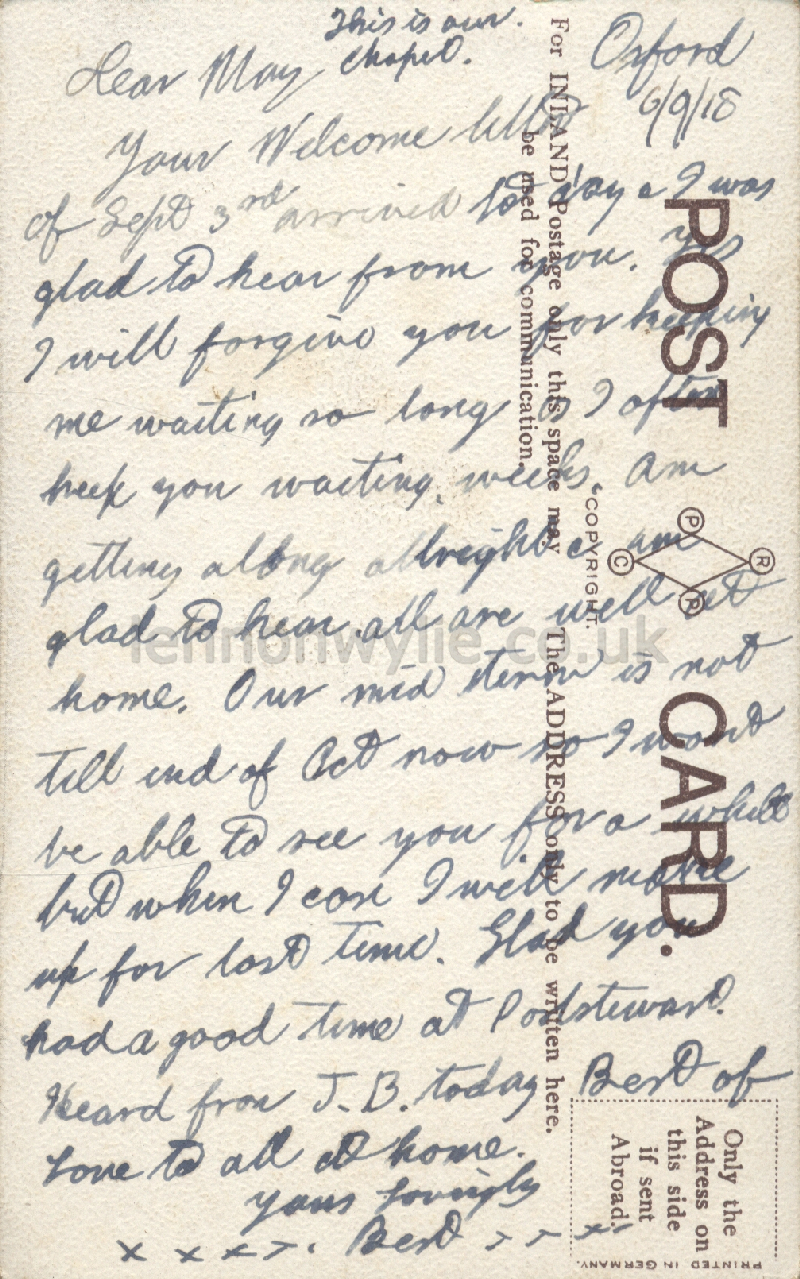 This is our
chapel.
Oxford
6/9/18
Dear May
Your Welcome letter
of Sept 3rd arrived to day & I was
glad to hear from you. Yes
I will forgive you for keeping
me waiting so long as I often
keep you waiting, weeks. Am
getting along allright & am
glad to hear all are well at
home. Our mid term is not
till end of Oct now so I wont
be able to see you for a while
but when I can I will make
up for lost time. Glad you
had a good time at Portstewart.
Heard from J.B. today Best of
Love to all at home.
yours lovingly
x x x x . Bert x x x
POST CARD.
"COPYRIGHT."
P
R
C
R
For INLAND Postage only this space may
be used for communication.
The ADDRESS only to be written here.
Only the
Address on
this side
if sent
Abroad.
PRINTED IN GERMANY.
lennonwylie.co.uk